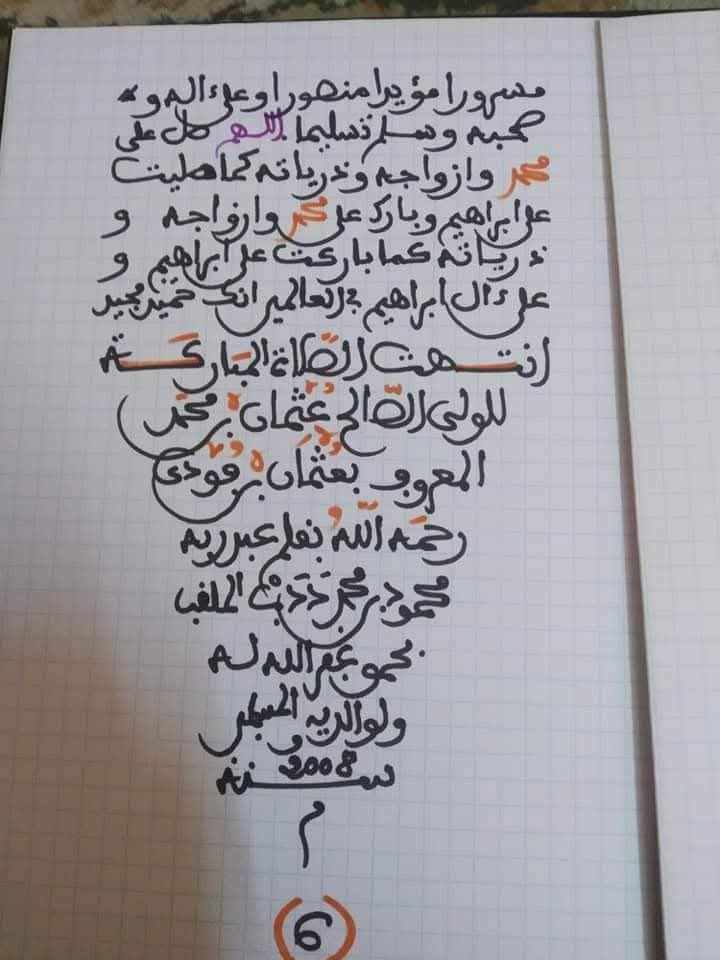 مسرورا مؤيدا منصورا وعلى ءاله و
صحبه وسلم تسليما. اللهم صل على
محمد وازواجه وذرياته كما صليت
على ابراهيم وبارك على محمد وازواجه و
ذرياته كما باركت على ابراهيم و
على ءال ابراهيم في العالمين انك حميد مجيد
انتهت الصَّلاة المبَاركَة
للولى الصَّالح عُثْمان بن محمَّد
المعروف بعُثْمَان بن فُودِى
رحمَه اللَّهُ بقلم عبد ربه
محمود بن محمد دَدَبْ الملقب
بحمو غفر الله له
ولوالديه و المسلمين
سنة 2008
م
(6)